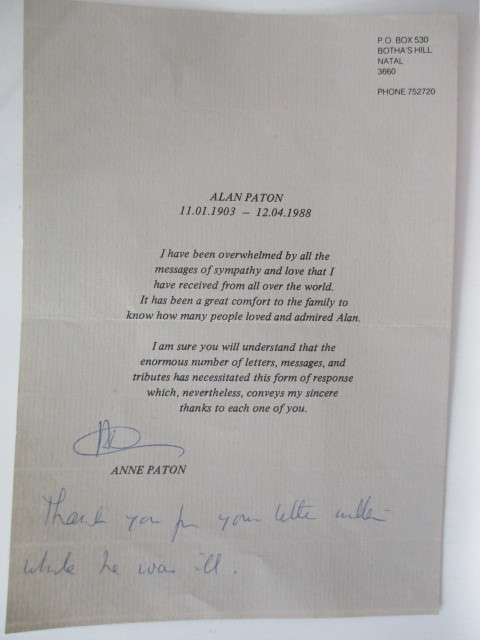 P.O. BOX 530
BOTHA'S HILL
NATAL
3660
PHONE 752720
ALAN PATON
11.01.1903 — 12.04.1988
I have been overwhelmed by all the
messages of sympathy and love that I
have received from all over the world.
It has been a great comfort to the family to
know how many people loved and admired Alan.
I am sure you will understand that the
enormous number of letters, messages, and
tributes has necessitated this form of response
which, nevertheless, conveys my sincere
thanks to each one of you.
ANNE PATON
Thank you for your letter written
while he was ill.